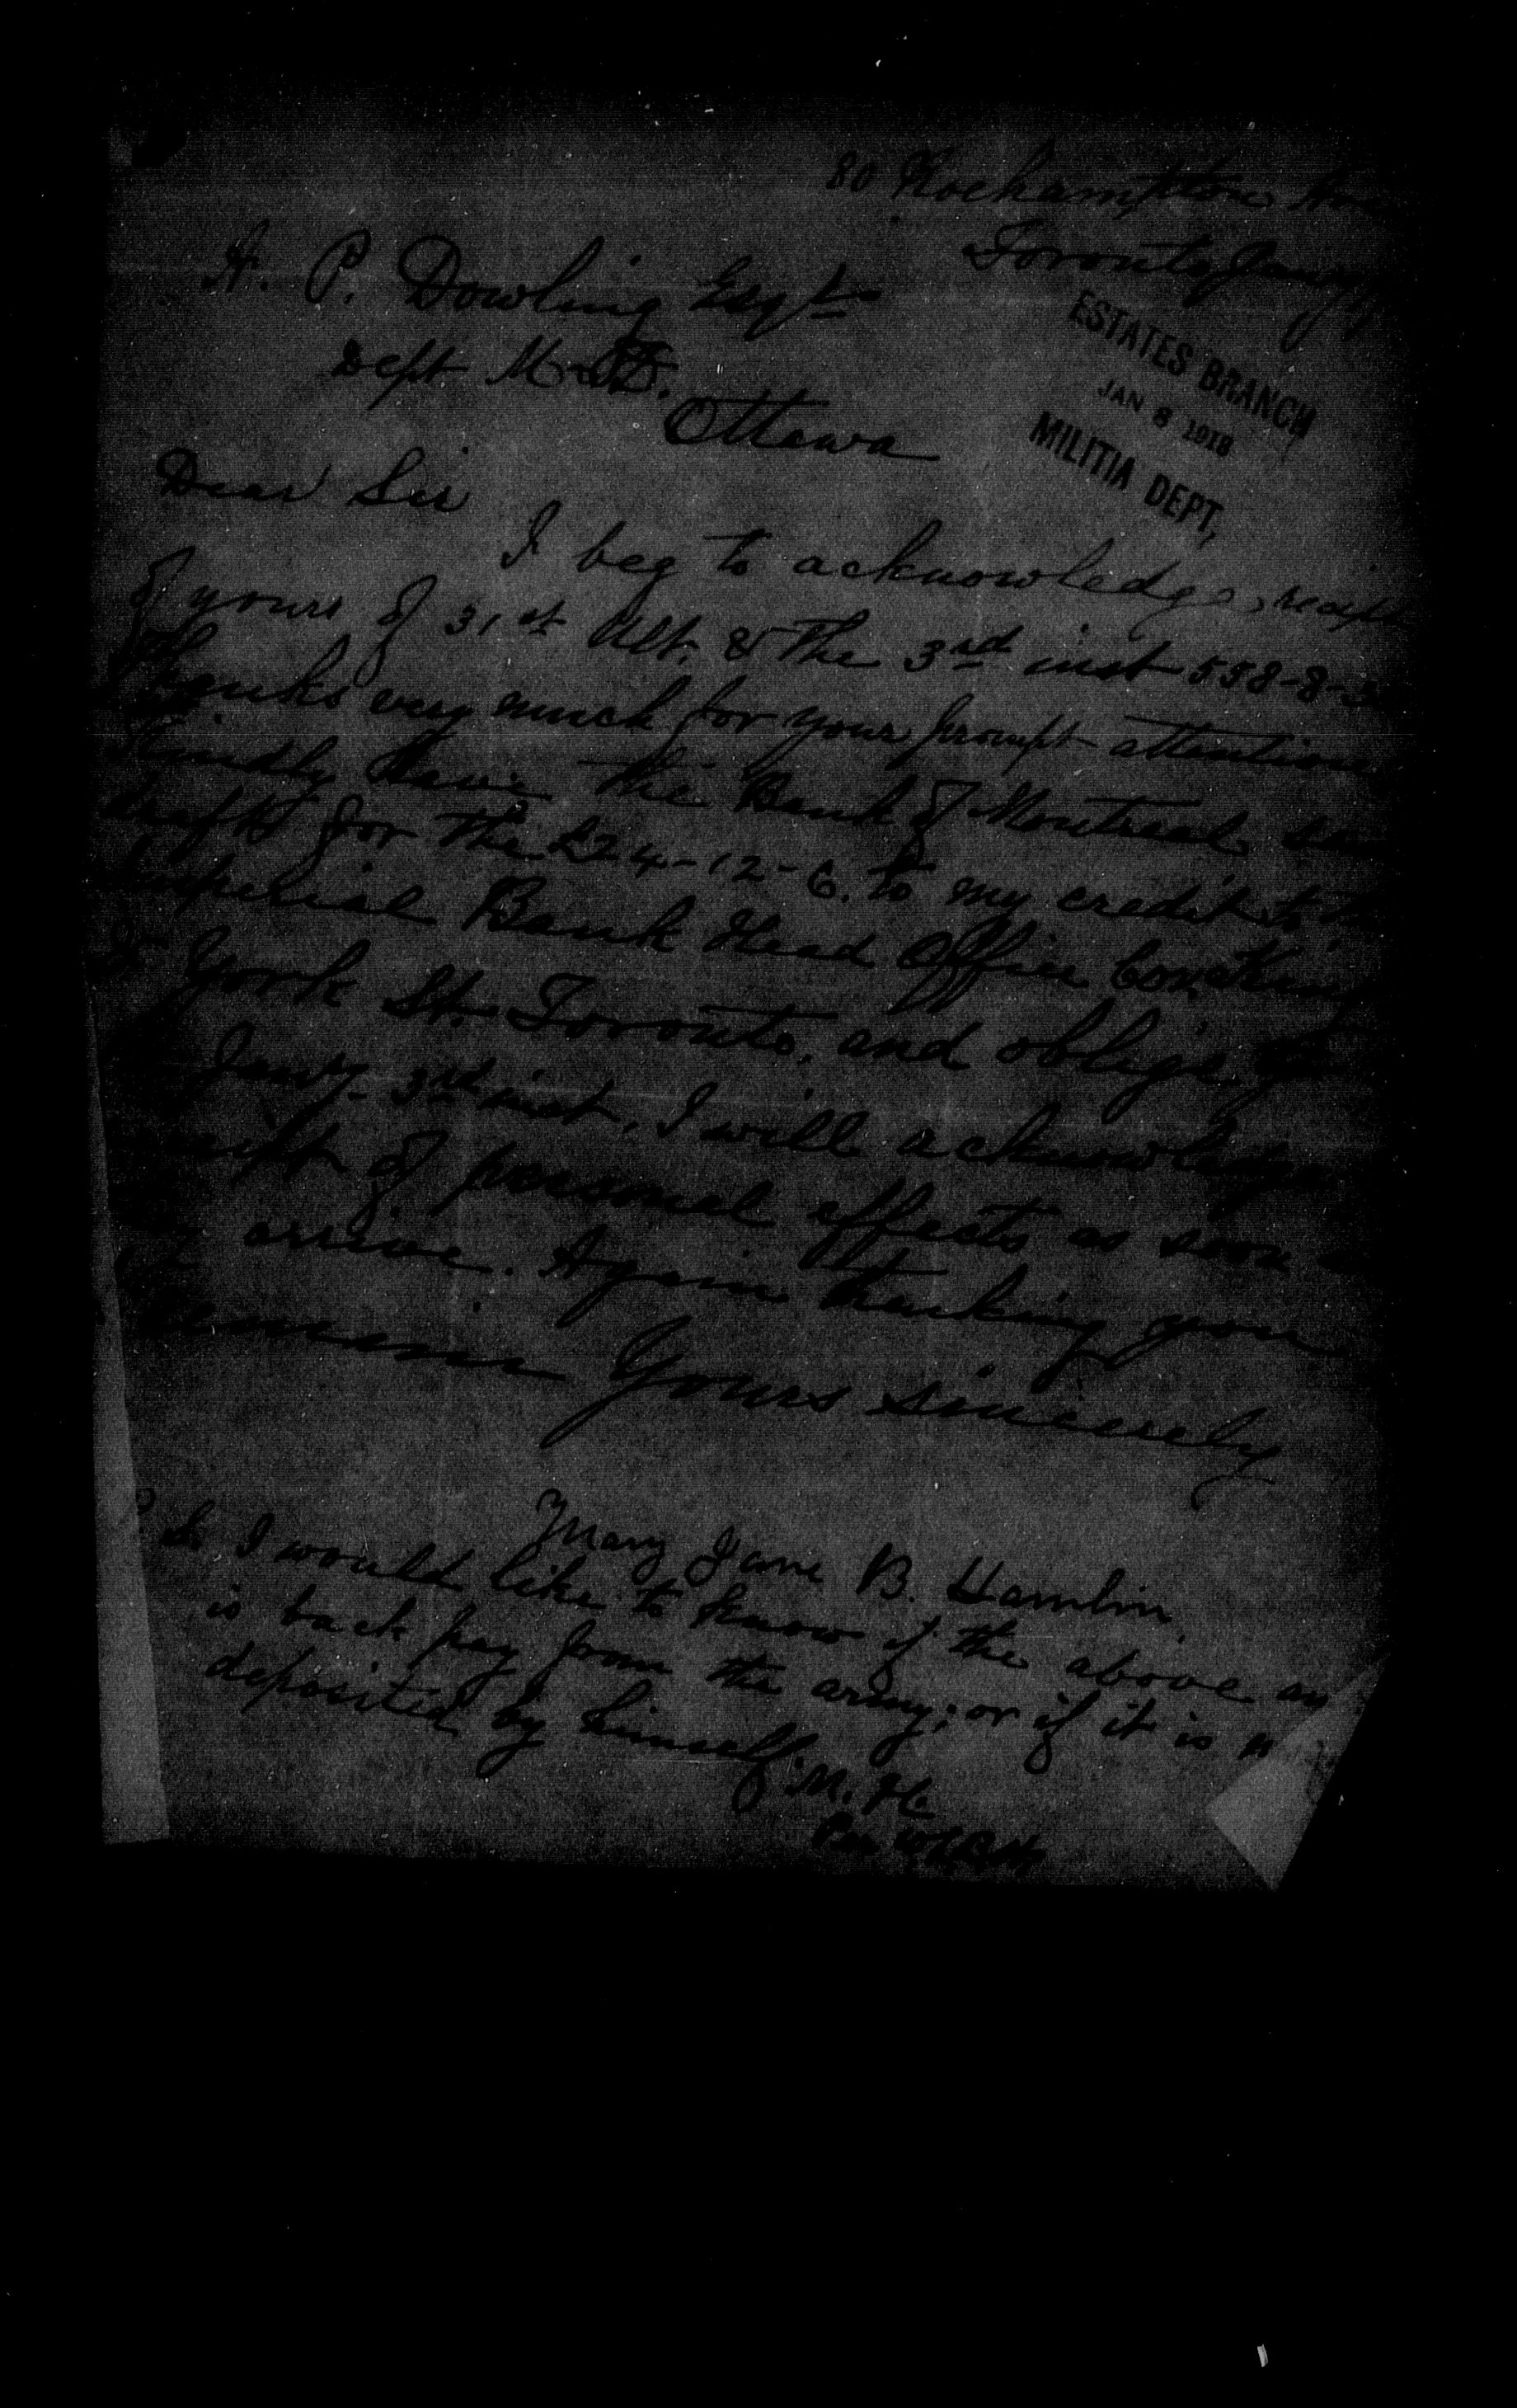 80 Roehampton Ave
Toronto Jany
A. P. Dowling Esqr
Dept M & D.
Ottawa
ESTATES BRANCH
JAN 8 1918
MILITIA DEPT.
Dear Sir
I beg to acknowledge receipt
of yours of 31st Ult. & the 3rd inst 558-8-3
Thanks very much for your prompt attention
Kindly have the Bank of Montreal
drafts for the £24-12-6. to my credit to
Imperial Bank Head Office Cor. King
& York St. Toronto. and oblige.
Jany 3rd inst. I will acknowledge
receipt of personal effects as soon
arrive. Again thanking you
remain Yours sincerely
Mary Jane B. Hamlin.
P.S. I would like to know if the above
is back pay from the army; or if it is
deposited by himself. M. H.
Per